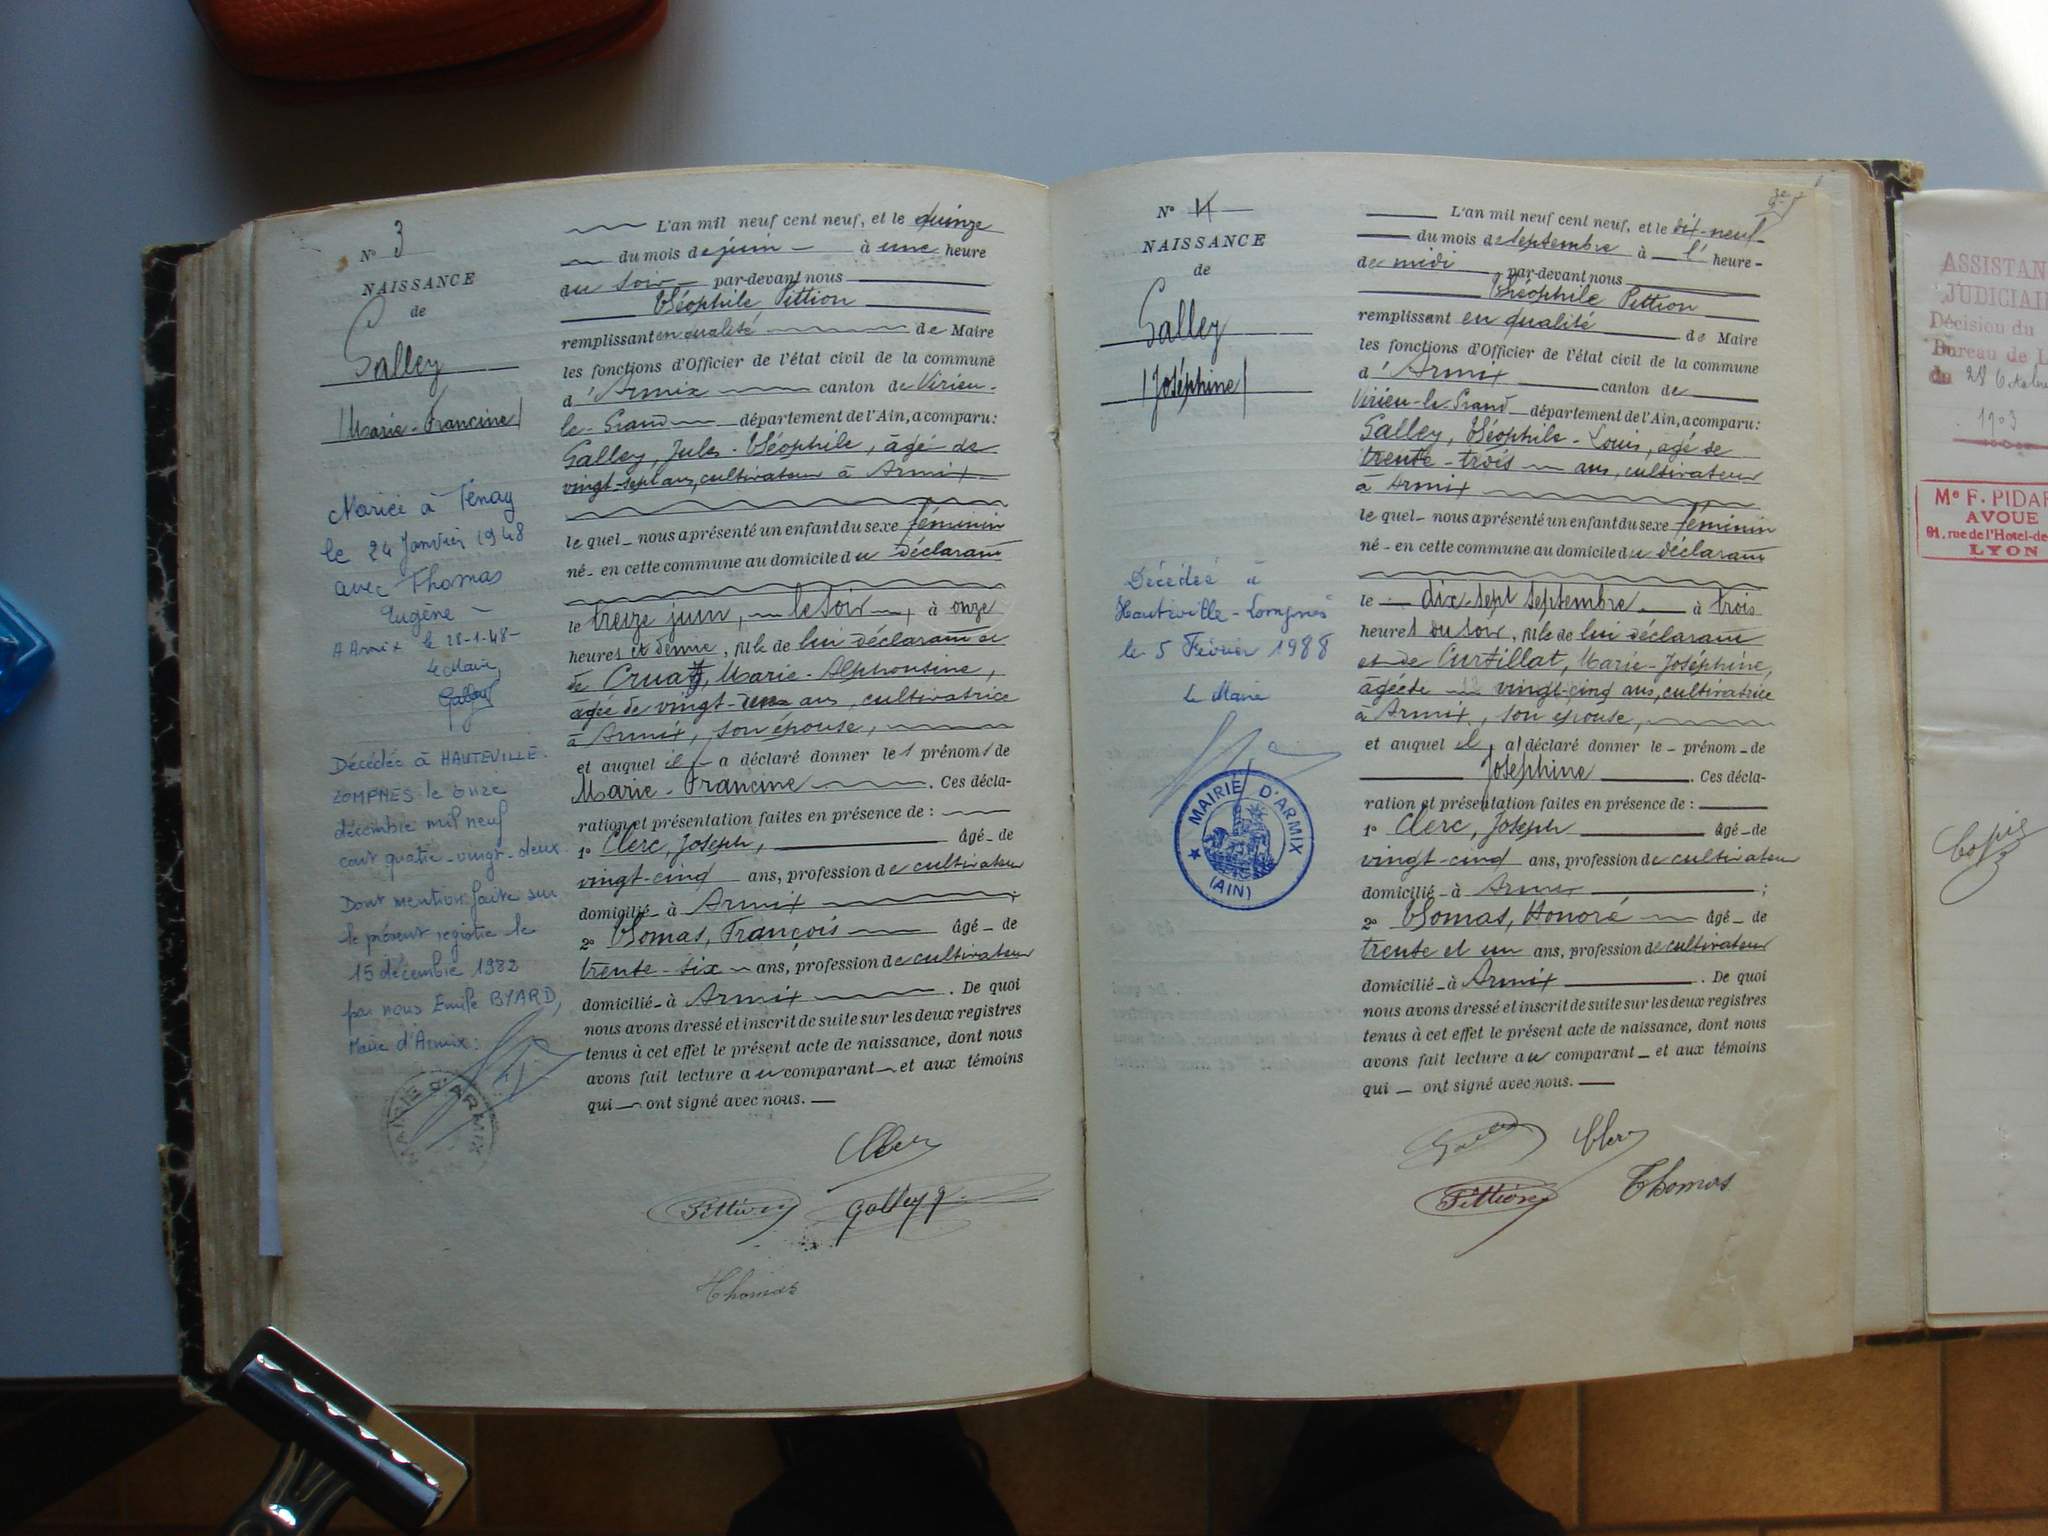 N° 3
NAISSANCE
de
Galley
(Marie-Francine)
Mariée à Tenay
le 24 Janvier 1948
avec Thomas
Eugène -
A Armix le 28-1-48-
Le Maire
Galley
Décédée à HAUTEVILLE-
LOMPNES le onze
décembre mil neuf
cent quatre-vingt-deux
Dont mention faite sur
le présent registre le
15 décembre 1982
par nous Emile BYARD,
Maire d'Armix:
MAIRIE D'ARMIX
L'an mil neuf cent neuf, et le quinze
du mois de juin à une heure
du soir par-devant nous
Théophile Pittion
remplissant en qualité de Maire
les fonctions d'Officier de l'état civil de la commune
d'Armix canton de Virieu-
le-Grand département de l'Ain, a comparu:
Galley, Jules-Théophile, âgé de
vingt-sept ans, cultivateur à Armix
le quel nous a présenté un enfant du sexe féminin
né en cette commune au domicile du déclarant
le treize juin, le soir, à onze
heures et demie, fille de lui déclarant et
de Cruat, Marie-Alphonsine,
âgée de vingt- ans, cultivatrice
à Armix, son épouse,
et auquel il a déclaré donner les prénoms de
Marie-Francine. Ces décla-
ration et présentation faites en présence de :
1° Clerc, Joseph, âgé de
vingt-cinq ans, profession de cultivateur
domicilié à Armix ;
2° Thomas, François âgé de
trente-six ans, profession de cultivateur
domicilié à Armix. De quoi
nous avons dressé et inscrit de suite sur les deux registres
tenus à cet effet le présent acte de naissance, dont nous
avons fait lecture au comparant et aux témoins
qui ont signé avec nous.
Clerc
Pittion Galley J.
Thomas
N° 4
NAISSANCE
de
Galley
(Joséphine)
Décédée à
Hauteville-Lompnes
le 5 Février 1988
Le Maire
MAIRIE D'ARMIX
(AIN)
L'an mil neuf cent neuf, et le dix-neuf
du mois de septembre à l' heure
de midi par-devant nous
Théophile Pittion
remplissant en qualité de Maire
les fonctions d'Officier de l'état civil de la commune
d'Armix canton de
Virieu-le-Grand département de l'Ain, a comparu:
Galley, Théophile-Louis, âgé de
trente-trois ans, cultivateur
à Armix
le quel nous a présenté un enfant du sexe féminin
né en cette commune au domicile du déclarant
le dix-sept septembre à trois
heures du soir, fille de lui déclarant
et de Curtillat, Marie-Joséphine,
âgée de vingt-cinq ans, cultivatrice
à Armix, son épouse,
et auquel il a déclaré donner le prénom de
Joséphine. Ces décla-
ration et présentation faites en présence de :
1° Clerc, Joseph âgé de
vingt-cinq ans, profession de cultivateur
domicilié à Armix ;
2° Thomas, Honoré âgé de
trente et un ans, profession de cultivateur
domicilié à Armix. De quoi
nous avons dressé et inscrit de suite sur les deux registres
tenus à cet effet le présent acte de naissance, dont nous
avons fait lecture au comparant et aux témoins
qui ont signé avec nous.
Galley Clerc
Pittion Thomas
ASSISTAN
JUDICIAIR
Décision du
Bureau de L
du 28 Octobre
1903
Me F. PIDA
AVOUE
91, rue de l'Hotel-de
LYON
Copie